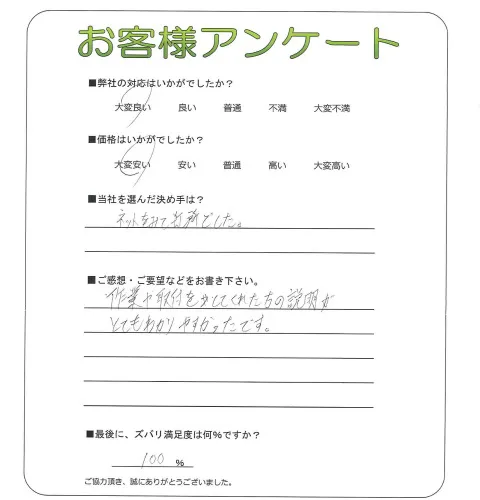 お客様アンケート
■弊社の対応はいかがでしたか？
大変良い 良い 普通 不満 大変不満
■価格はいかがでしたか？
大変安い 安い 普通 高い 大変高い
■当社を選んだ決め手は？
ネットをみて でした。
■ご感想・ご要望などをお書き下さい。
作業や取付をしてくれた方の説明が
とてもわかりやすかったです。
■最後に、ズバリ満足度は何%ですか？
100 %
ご協力頂き、誠にありがとうございました。